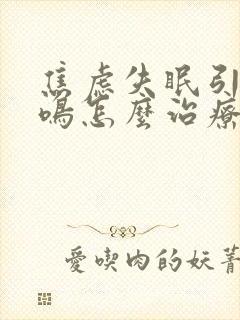 焦虑失眠引
鳴怎麼治療
愛喫肉的妖菁